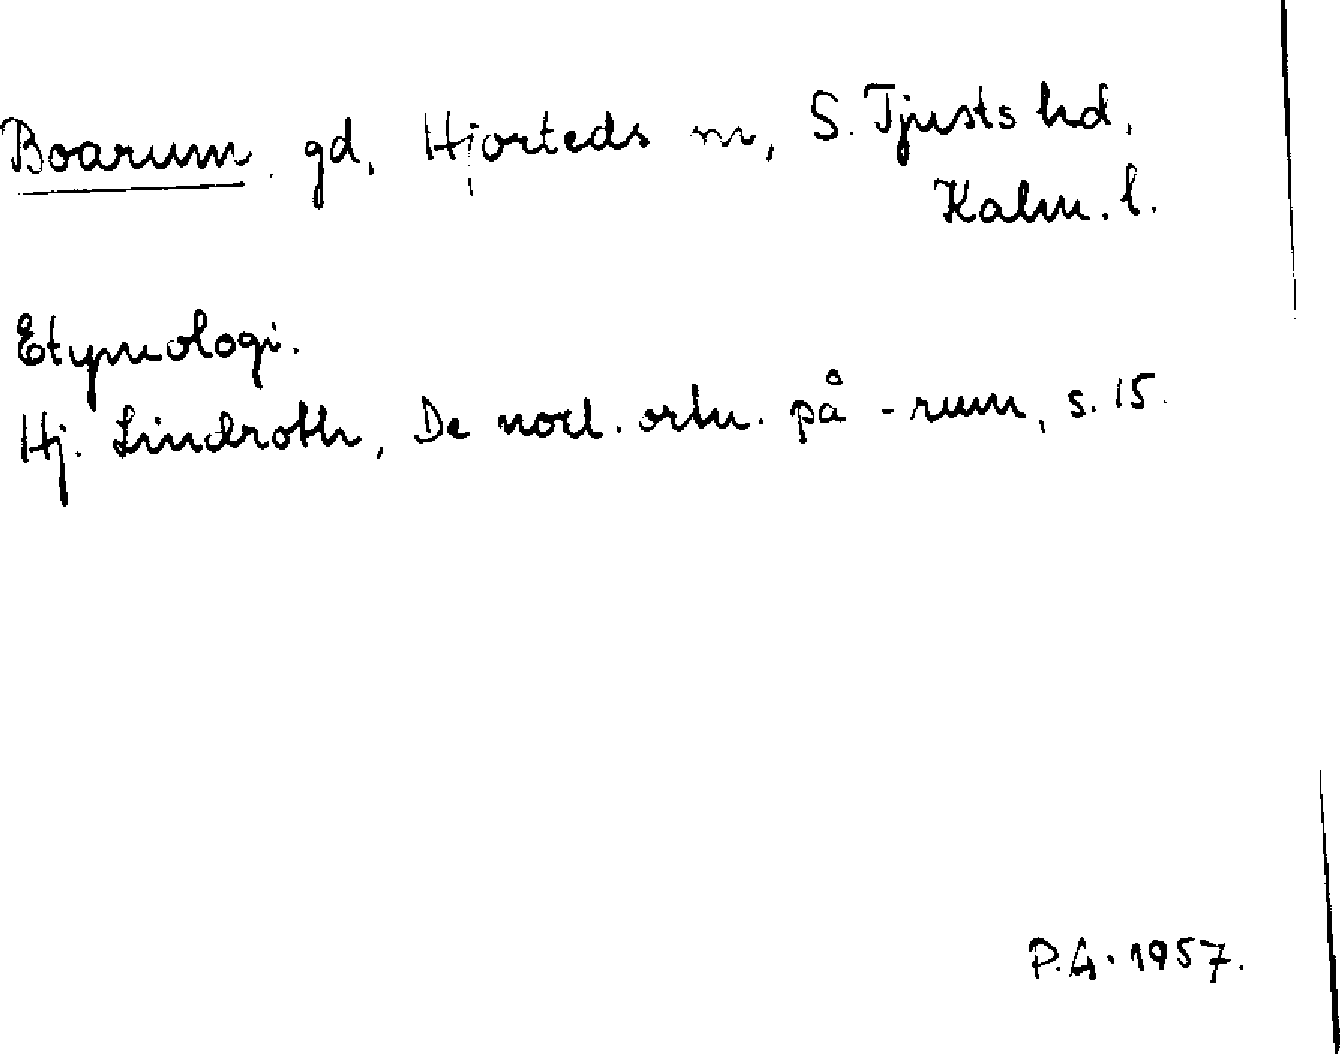 Boarum. gd, Hjorteds sn, S. Tjusts hd,
Kalm. l.
Etymologi.
Hj. Lindroth, De nord. ortn. på -rum, s. 15.
P.A. 1957.